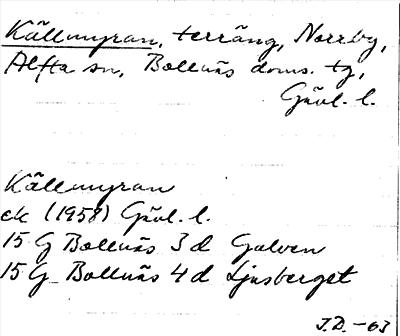 Källmyran, terräng, Norrby,
Alfta sn, Bollnäs doms. tg,
Gävl. l.
Källmyran
ek (1958) Gävl. l.
15 G Bollnäs 3 d Galven
15 G Bollnäs 4 d Ljusberget
J.D. -63